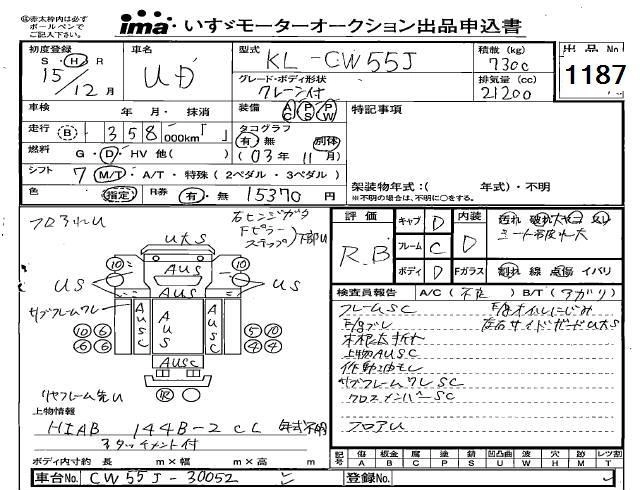 ㊟赤太枠内は必ず
ボールペンで
ご記入下さい。
ima いすゞモーターオークション出品申込書
初度登録 S・H・R 15/12月
車名 UD
型式 KL-CW55J
グレード・ボディ形状 クレーン付
積載 (kg) 7300
排気量 (cc) 21200
出品No. 1187
車検 年 月・抹消
装備 AC PS PW
特記事項
走行 B 358000km「 」
タコグラフ 有・無 別体
(03年11月)
燃料 G・D・HV 他( )
シフト 7 M/T・A/T・特殊(2ペダル・3ペダル)
架装物年式:( 年式)・不明
※不明の場合は、不明に○をする。
色 指定 R券 有・無 15370円
フロアれU
右ヒンジガタ
Fピラー
ステップ 下部U
UたS
AUS
AUS
US US
AUSC AUS AUSC
AUSC
サブフレームワレ
10 10
10 6 6 6
5 10 4 4
R
リヤフレーム先U
上物情報
HIAB 144B-2CL 年式不明
アタッチメント付
ボディ内寸約 長 m×幅 m×高 m
車台No. CW55J-30052
登録No.
評価 R.B
キャブ D
フレーム C
ボディ D
内装 D
Fガラス 割れ 線 点傷 イバリ
汚れ 破れ大 ヤニ
シート破れ大
検査員報告 A/C(不良) B/T(アガリ)
フレームSC
上物AUSC
作動油モレ
サブフレームワレSC
クロスメンバーSC
フロアU
左右サイドガードUたS
記号 傷 A 板金 B 腐 C 塗 P 錆 S 凹凸曲 U 波 W 穴 H 跡 M レツ割 T